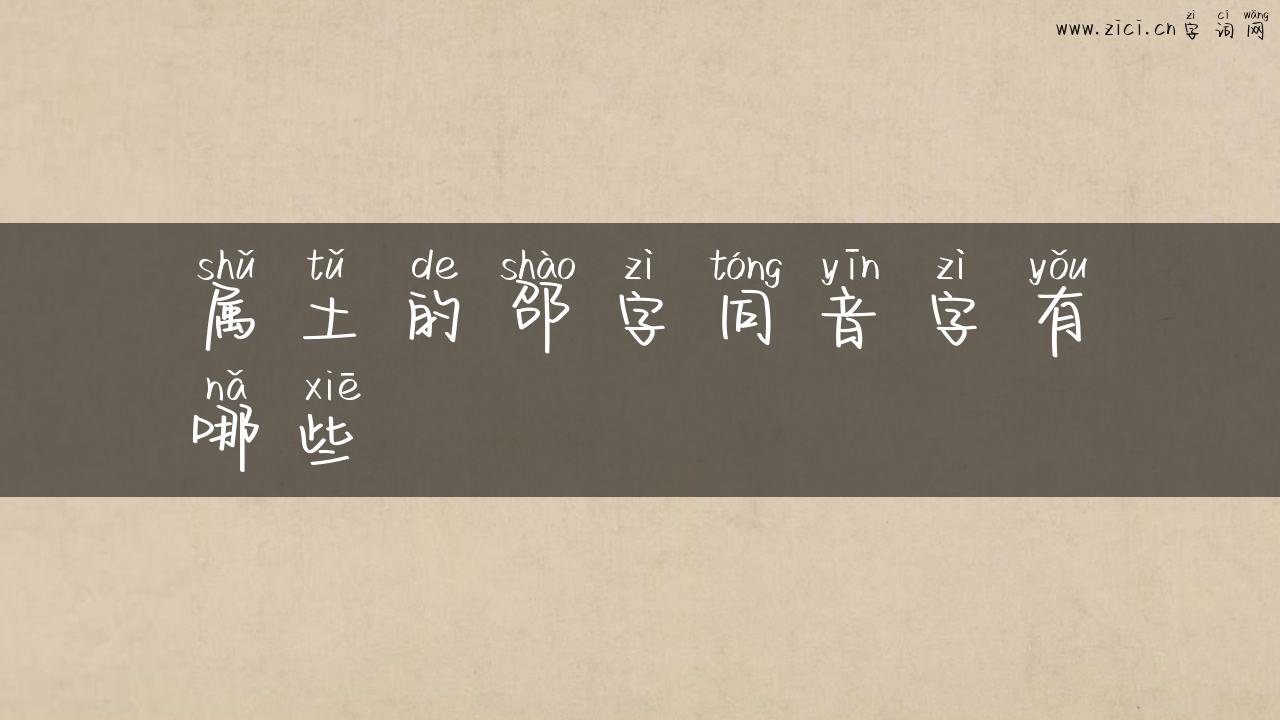 zì cí wǎng
www.zici.cn 字词网
shǔ tǔ de shào zì tóng yīn zì yǒu
属土的邵字同音字有
nǎ xiē
哪些